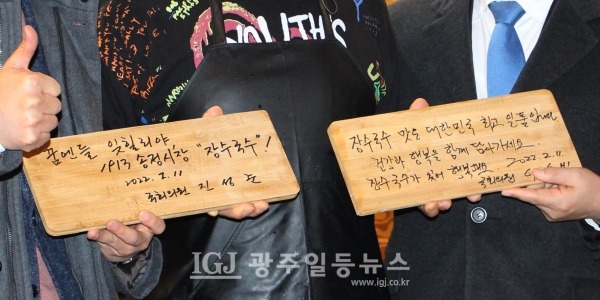 꿈엔들 잊힐리야
1913 송정시장 "장수국수"!
2022. 2. 11
국회의원 진성준
장수국수 맛은 대한민국 최고 일품입니다
건강과 행복을 함께 담아가세요.
장수국수가 있어 행복해요 2022. 2. 11
국회의원
YOUTH
IGJ 광주일등뉴스
www.igj.co.kr